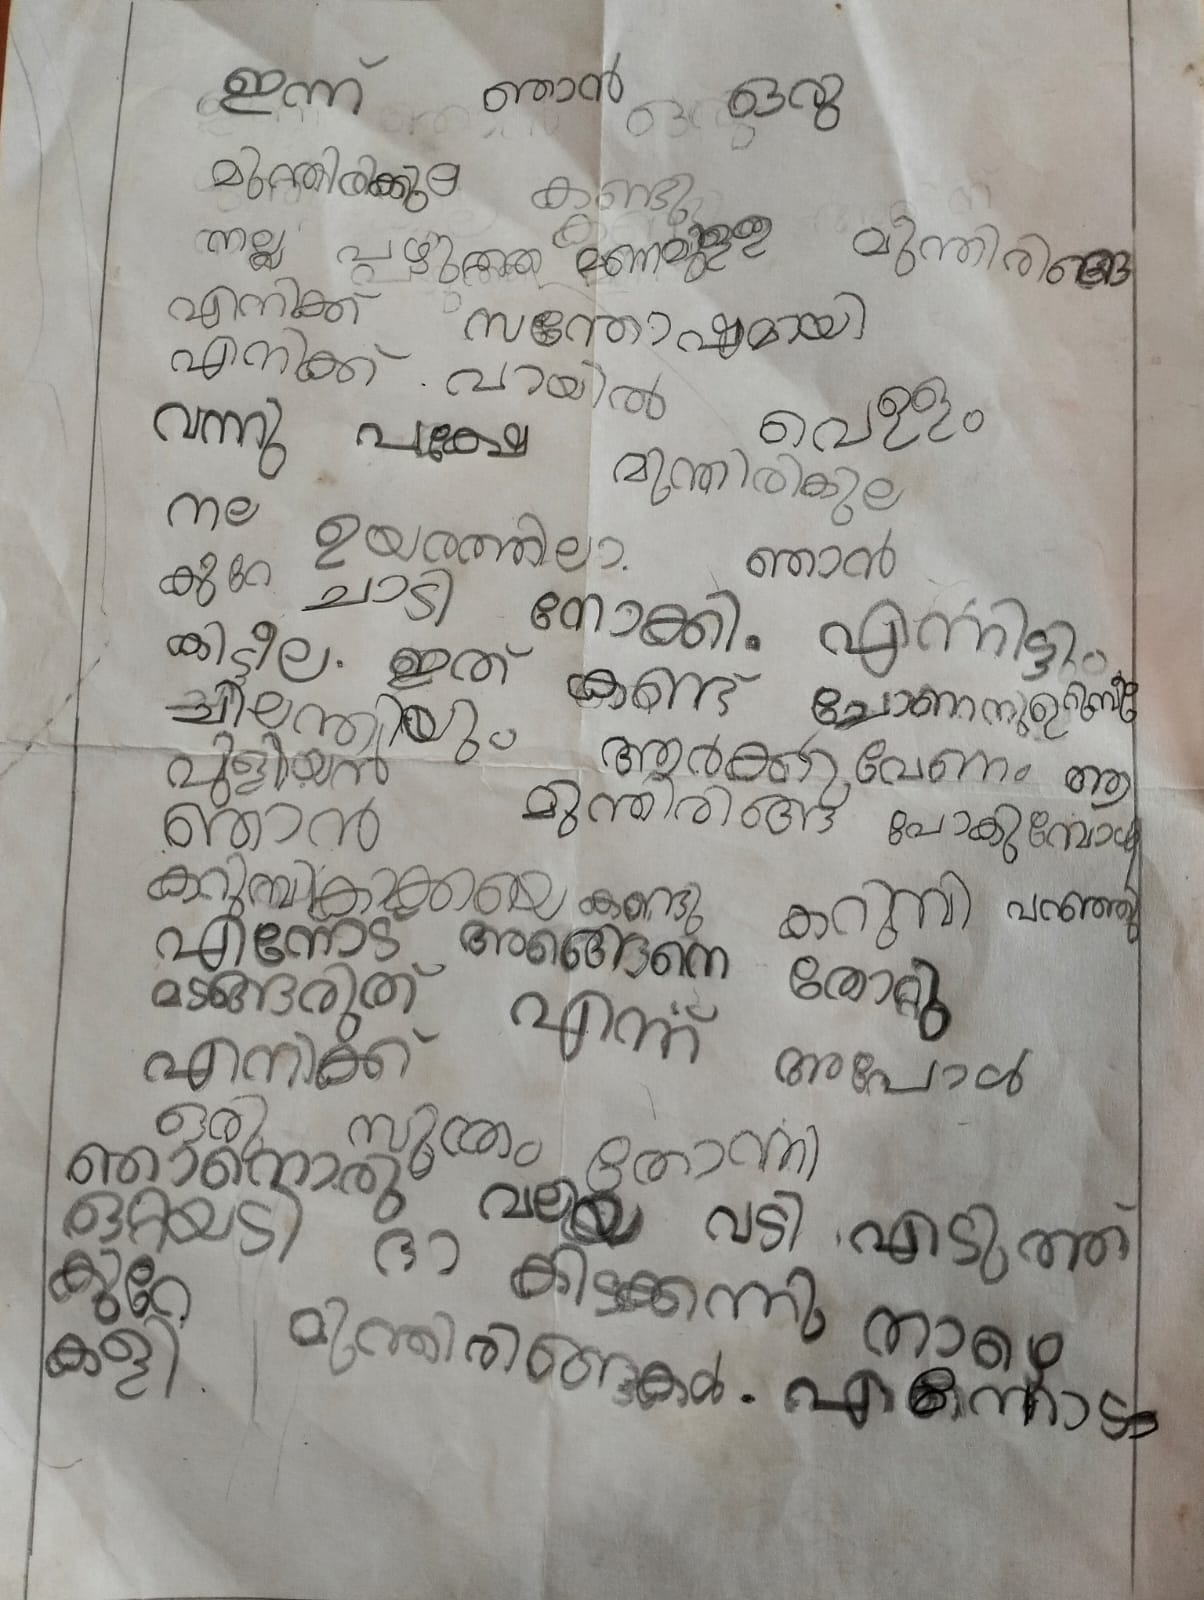 ഇന്ന് ഞാൻ ഒരു
മുന്തിരിക്കുല കണ്ടു
നല്ല പഴുത്ത മണമുള്ള മുന്തിരിങ്ങ
എനിക്ക് സന്തോഷമായി
എനിക്ക് വായിൽ വെള്ളം
വന്നു പക്ഷേ മുന്തിരികുല
നല ഉയരത്തിലാ. ഞാൻ
കുറേ ചാടി നോക്കി. എന്നിട്ടും
കിട്ടീല. ഇത് കണ്ട്
ചിലന്തിയും ആർക്കു വേണം ആ
പുളിയൻ മുന്തിരിങ്ങ പോകുമ്പോൾ
ഞാൻ
കണ്ടു കറുമ്പി പറഞ്ഞു
എന്നോട് അങ്ങെനെ തോറ്റു
മടങ്ങരുത് എന്ന് അപോൾ
എനിക്ക്
ഒരു സുത്രം തോന്നി
ഞാനൊരു വലിയ വടി എടുത്ത്
ഒറ്റയടി ദാ കിടക്കന്നു താഴെ
കുറേ മുന്തിരിങ്ങകൾ. എന്നോടാ
കളി.